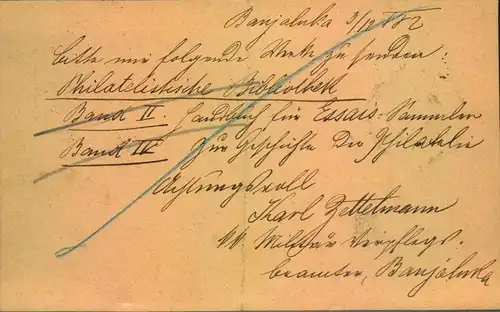 Banjaluka 3/12 882
bitte mir folgende Werke zu senden.
Philatelistische Bibliothek
Band II. Handbuch für Essais-Sammler
Band IV Zur Geschichte der Philatelie
Achtungsvoll
Karl Zettelmann
kk Militär Verpflegs-
beamter, Banjaluka